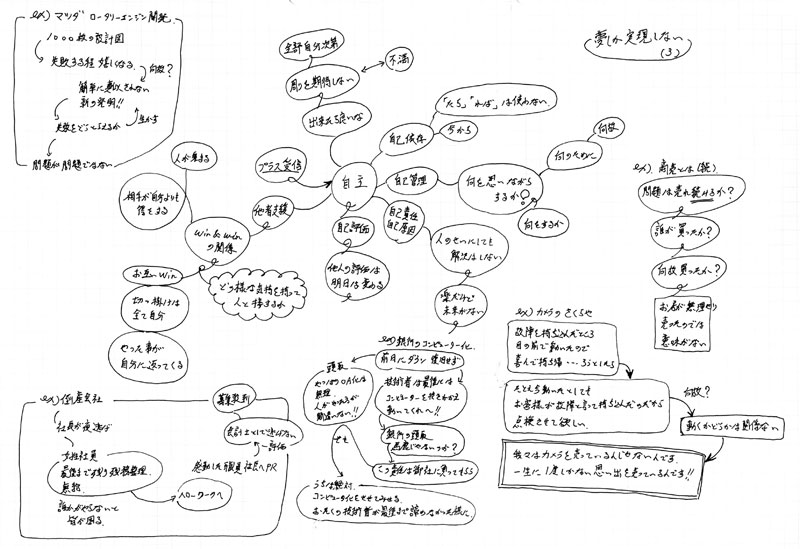 ex) マツダ ロータリーエンジン開発
1000枚の設計図
失敗する程 嬉しくなる
何故?
簡単に真似されない
新の発明!!
生かす
失敗をどうとらえるか
問題が問題でない
全評自分次第
周りを期待しない
不満
出来たら良いな
「たら」「れば」は使わない
自己依存
今から
夢しか実現しない
(3)
自主
プラス受信
他者支援
自己管理
何を思いながら
するか
何のために
何故
何をするか
自己責任
自己原因
人のせいにしても
解決はしない
楽だけど
未来がない
自己評価
他人の評価は
明日は変わる
win & win
の関係
人が集まる
相手が自分よりも
得をする
お互いWin
切っ掛けは
全て自分
やった事が
自分に返ってくる
どう様な気持を持って
人と接するか
ex). 商売とは(続)
問題は売れ続けるか?
誰が買ったか?
何故買ったか?
お店が無理やり
売ったのでは
意味がない
ex) カメラのさくらや
故障を持ち込んだところ
目の前で動いたので
喜んで持ち帰…ろうとしたら
たとえ動いたとしても
お客様が故障と言って持ち込んだのだから
点検させて欲しい
何故?
動くかどうかは関係ない
我々はカメラを売っているんじゃないんです.
一生に1度しかない思い出を売っているんです!!
ex) 銀行のコンピューター化
前日にダウン 復旧せず
技術者は最後には
コンピューターを抱きかかえ
動いてくれ〜!!
頭取
やっぱりOA化は
無理
人がやる方が
間違いない!!
でも
銀行の頭取
馬鹿じゃないのか?
この責任は御社に買ってもらう
うちは絶対
コンピュータ化をさせてみせる.
おたくの技術者が最後まで諦めなかった様に
ex) 倒産会社
社長が夜逃げ
女性社員
最後まで残り残務整理
無給
誰かがやらないと
皆が困る
ハローワークへ
募集殺到
会計士として選ばない
評価
感動した職員 社長へPR